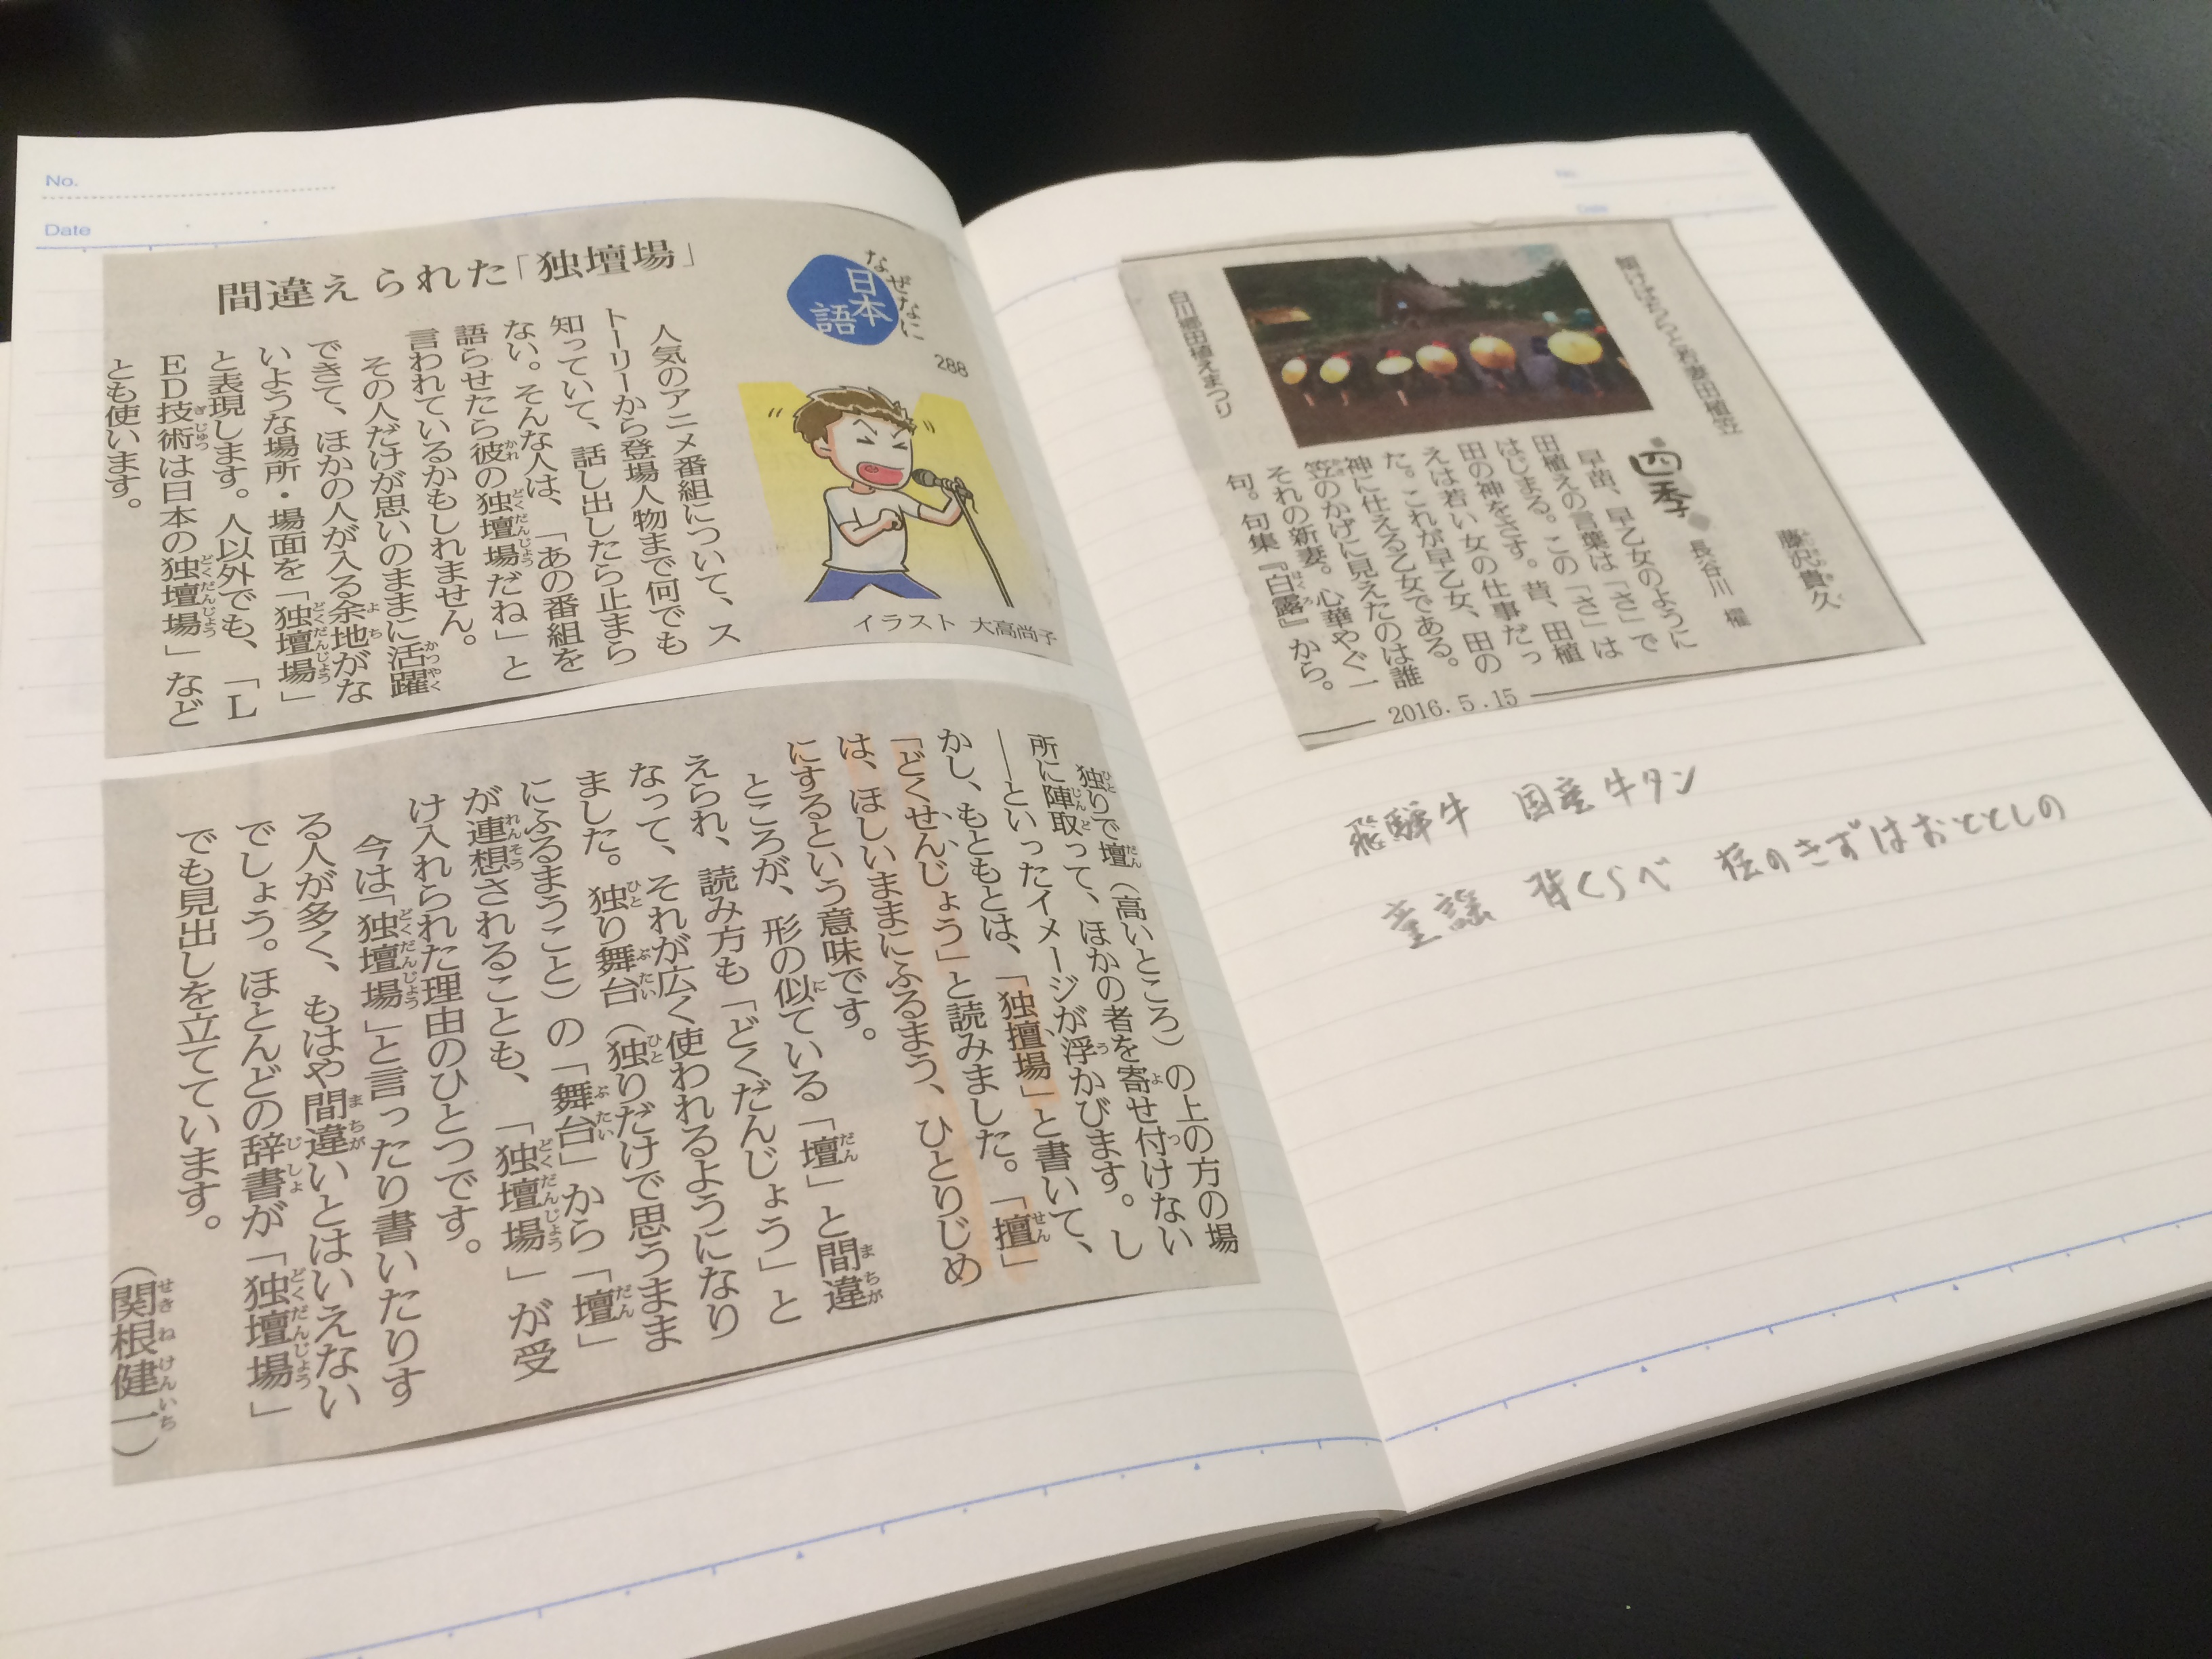 No.
Date
なぜなに
日本語
288
間違えられた「独壇場」
人気のアニメ番組について、ス
トーリーから登場人物まで何でも
知っていて、話し出したら止まら
ない。そんな人は、「あの番組を
語らせたら彼の独壇場だね」と
言われているかもしれません。
その人だけが思いのままに活躍
できて、ほかの人が入る余地がな
いような場所・場面を「独壇場」
と表現します。人以外でも、「L
ED技術は日本の独壇場」など
とも使います。
イラスト 大高尚子
独りで壇（高いところ）の上の方の場
所に陣取って、ほかの者を寄せ付けない
――といったイメージが浮かびます。し
かし、もともとは、「独擅場」と書いて、
「どくせんじょう」と読みました。「擅」
は、ほしいままにふるまう、ひとりじめ
にするという意味です。
ところが、形の似ている「壇」と間違
えられ、読み方も「どくだんじょう」と
なって、それが広く使われるようになり
ました。独り舞台（独りだけで思うまま
にふるまうこと）の「舞台」から「壇」
が連想されることも、「独壇場」が受
け入れられた理由のひとつです。
今は「独壇場」と言ったり書いたりす
る人が多く、もはや間違いとはいえない
でしょう。ほとんどの辞書が「独壇場」
でも見出しを立てています。
（関根健一）
No.
Date
若妻田植笠
藤沢貴久
四季
長谷川 櫂
早苗、早乙女のように
田植えの言葉は「さ」で
はじまる。この「さ」は
田の神をさす。昔、田植
えは若い女の仕事だっ
た。これが早乙女、田の
神に仕える乙女である。
笠のかげに見えたのは誰
それの新妻。心華やぐ一
句。句集『白露』から。
白川郷田植えまつり
2016.5.15
飛騨牛 国産牛タン
童謡 背くらべ 柱のきずはおととしの